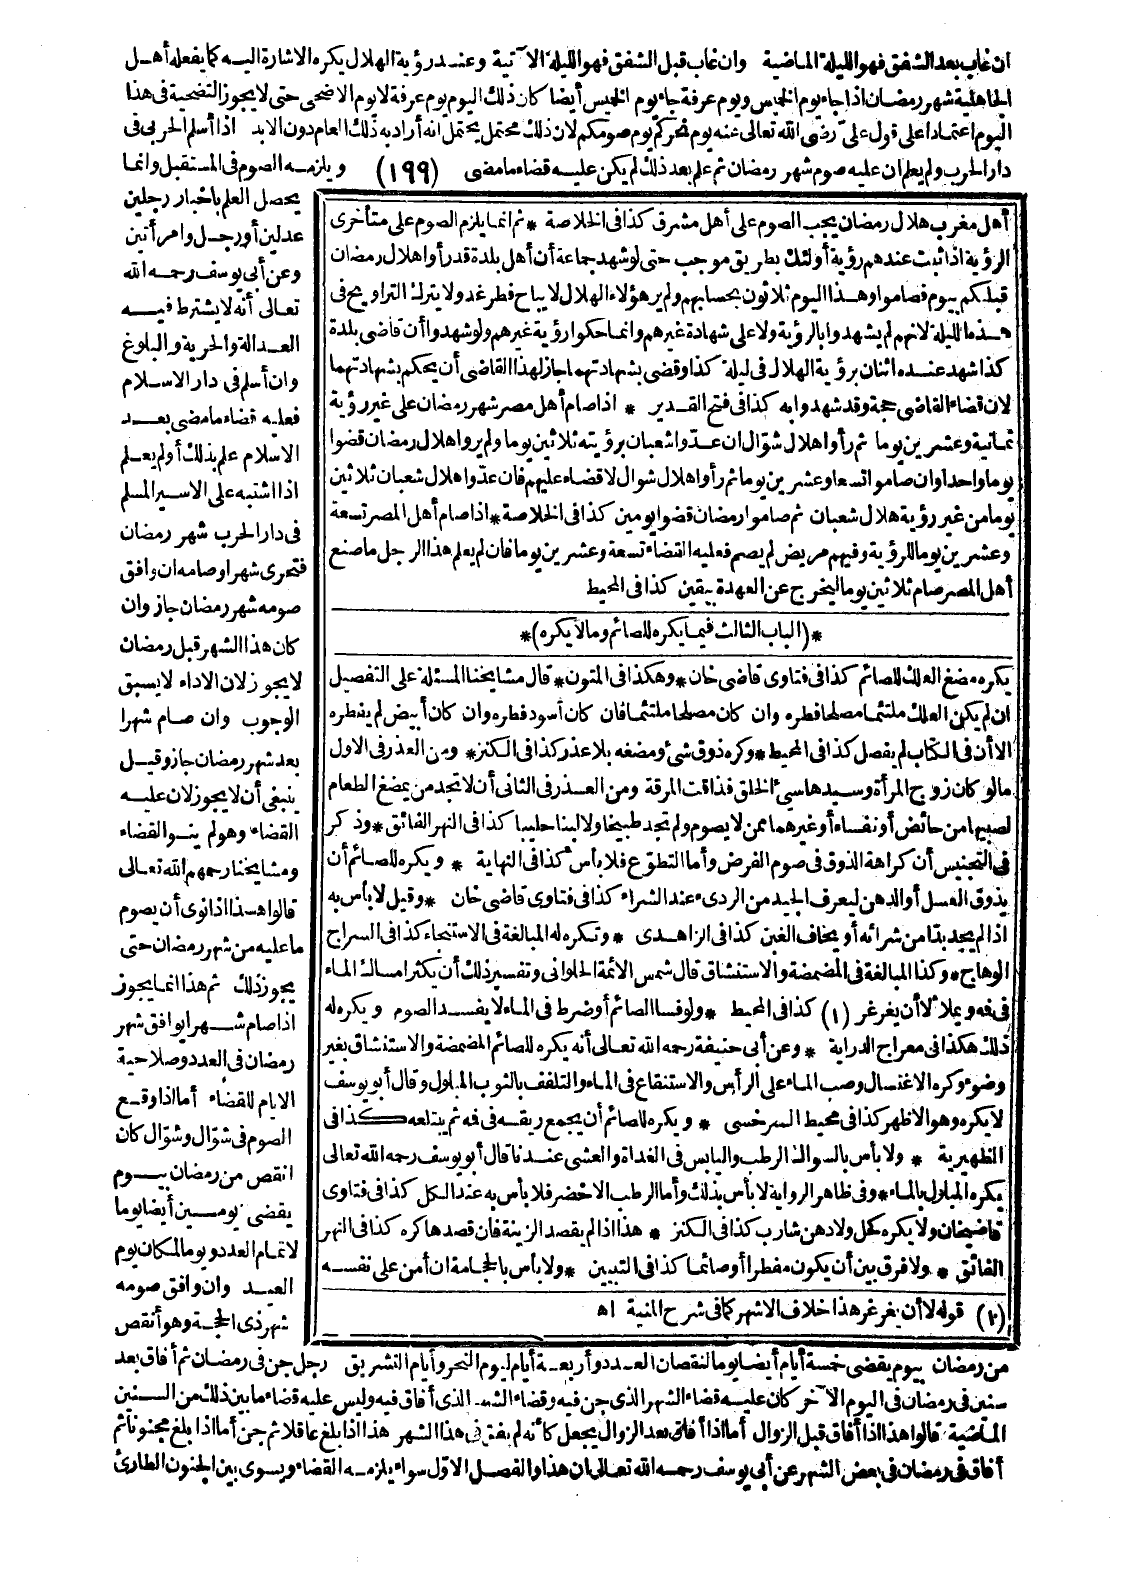 ان غاب بعد الشفق فهو الليلة الماضية وان غاب قبل الشفق فهو الليلة الآتية وعند رؤية الهلال يكره الاشارة اليه كما يفعله أهل
الجاهلية شهر رمضان اذا جاء يوم الخميس ويوم عرفة جاء يوم الخميس أيضا كان ذلك اليوم يوم عرفة لا يوم الاضحى حتى لا يجوز التضحية فى هذا
اليوم اعتمادا على قول على رضى الله تعالى عنه يوم نحركم يوم صومكم لان ذلك محتمل يحتمل انه أراد به ذلك العام دون الابد اذا أسلم الحربى فى
دار الحرب ولم يعلم ان عليه صوم شهر رمضان ثم علم بعد ذلك لم يكن عليه قضاء ما مضى (١٩٩) ويلزمه الصوم فى المستقبل وانما
أهل مغرب هلال رمضان يجب الصوم على أهل مشرق كذا فى الخلاصة * ثم انما يلزم الصوم على متأخرى
الرؤية اذا ثبت عندهم رؤية أولئك بطريق موجب حتى لو شهد جماعة أن أهل بلدة قد رأوا هلال رمضان
قبلكم بيوم فصاموا وهذا اليوم ثلاثون بحسابهم ولم ير هؤلاء الهلال لا يباح فطر غد ولا يترك التراويح فى
هذه الليلة لانهم لم يشهدوا بالرؤية ولا على شهادة غيرهم وانما حكوا رؤية غيرهم ولو شهدوا أن قاضى بلدة
كذا شهد عنده اثنان برؤية الهلال فى ليلة كذا وقضى بشهادتهما جاز لهذا القاضى أن يحكم بشهادتهما
لان قضاء القاضى حجة وقد شهدوا به كذا فى فتح القدير * اذا صام أهل مصر شهر رمضان على غير رؤية
ثمانية وعشرين يوما ثم رأوا هلال شوّال ان عدّوا شعبان برؤيته ثلاثين يوما ولم يروا هلال رمضان قضوا
يوما واحدا وان صاموا تسعا وعشرين يوما ثم رأوا هلال شوال لا قضاء عليهم فان عدّوا هلال شعبان ثلاثين
يوما من غير رؤية هلال شعبان ثم صاموا رمضان قضوا يومين كذا فى الخلاصة * اذا صام أهل المصر تسعة
وعشرين يوما للرؤية وفيهم مريض لم يصم فعليه القضاء تسعة وعشرين يوما فان لم يعلم هذا الرجل ما صنع
أهل المصر صام ثلاثين يوما ليخرج عن العهدة بيقين كذا فى المحيط
*(الباب الثالث فيما يكره للصائم وما لا يكره)*
يكره مضغ العلك للصائم كذا فى فتاوى قاضى خان * وهكذا فى المتون * قال مشايخنا المسئلة على التفصيل
ان لم يكن العلك ملتئما مصلحا فطره وان كان مصلحا ملتئما فان كان أسود فطره وان كان أبيض لم يفطره
الا أن فى الكتاب لم يفصل كذا فى المحيط * وكره ذوق شئ ومضغه بلا عذر كذا فى الكنز * ومن العذر فى الاول
ما لو كان زوج المرأة وسيدها سيئ الخلق فذاقت المرقة ومن العذر فى الثانى أن لا تجد من يمضغ الطعام
لصبيها من حائض أو نفساء أو غيرهما ممن لا يصوم ولم تجد طبيخا ولا لبنا حليبا كذا فى النهر الفائق * وذكر
فى التجنيس أن كراهة الذوق فى صوم الفرض وأما التطوّع فلا بأس كذا فى النهاية * ويكره للصائم أن
يذوق العسل أو الدهن ليعرف الجيد من الردىء عند الشراء كذا فى فتاوى قاضى خان * وقيل لا بأس به
اذا لم يجد بدّا من شرائه أو يخاف الغبن كذا فى الزاهدى * وتكره له المبالغة فى الاستنجاء كذا فى السراج
الوهاج * وكذا المبالغة فى المضمضة والاستنشاق قال شمس الائمة الحلوانى وتفسير ذلك أن يكثر امساك الماء
فى فمه ويملأ لا أن يغرغر (١) كذا فى المحيط * ولو فسا الصائم أو ضرط فى الماء لا يفسد الصوم ويكره له
ذلك هكذا فى معراج الدراية * وعن أبى حنيفة رحمه الله تعالى أنه يكره للصائم المضمضة والاستنشاق بغير
وضوء وكره الاغتسال وصب الماء على الرأس والاستنقاع فى الماء والتلفف بالثوب المبلول وقال أبو يوسف
لا يكره وهو الاظهر كذا فى محيط السرخسى * ويكره للصائم أن يجمع ريقه فى فمه ثم يبتلعه كذا فى
الظهيرية * ولا بأس بالسواك الرطب واليابس فى الغداة والعشى عندنا قال أبو يوسف رحمه الله تعالى
يكره المبلول بالماء * وفى ظاهر الرواية لا بأس بذلك وأما الرطب الاخضر فلا بأس به عند الكل كذا فى فتاوى
قاضيخان ولا يكره كحل ولا دهن شارب كذا فى الكنز * هذا اذا لم يقصد الزينة فان قصدها كره كذا فى النهر
الفائق * ولا فرق بين أن يكون مفطرا أو صائما كذا فى التبيين * ولا بأس بالحجامة ان أمن على نفسه
(١) قوله لا أن يغرغر هذا خلاف الاشهر كما فى شرح المنية اه
يحصل العلم باخبار رجلين
عدلين أو رجل وامرأتين
وعن أبى يوسف رحمه الله
تعالى أنه لا يشترط فيه
العدالة والحرية والبلوغ
وان أسلم فى دار الاسلام
فعليه قضاء ما مضى بعد
الاسلام علم بذلك أو لم يعلم
اذا اشتبه على الاسير المسلم
فى دار الحرب شهر رمضان
فتحرى شهرا وصامه ان وافق
صومه شهر رمضان جاز وان
كان هذا الشهر قبل رمضان
لا يجوز لان الاداء لا يسبق
الوجوب وان صام شهرا
بعد شهر رمضان جاز وقيل
ينبغى أن لا يجوز لان عليه
القضاء وهو لم ينو القضاء
ومشايخنا رحمهم الله تعالى
قالوا هذا اذا نوى أن يصوم
ما عليه من شهر رمضان حتى
يجوز ذلك ثم هذا انما يجوز
اذا صام شهرا يوافق شهر
رمضان فى العدد وصلاحية
الايام للقضاء أما اذا وقع
الصوم فى شوّال وشوّال كان
انقص من رمضان بيوم
يقضى يومين أيضا يوما
لاتمام العدد ويوما لمكان يوم
العيد وان وافق صومه
شهر ذى الحجة وهو أنقص
من رمضان بيوم يقضى خمسة أيام أيضا يوما لنقصان العدد وأربعة أيام ليوم النحر وأيام التشريق رجل جن فى رمضان ثم أفاق بعد
سنين فى رمضان فى اليوم الآخر كان عليه قضاء الشهر الذى جن فيه وقضاء الشهر الذى أفاق فيه وليس عليه قضاء ما بين ذلك من السنين
الماضية قالوا هذا اذا أفاق قبل الزوال أما اذا أفاق بعد الزوال يجعل كأنه لم يفق فى هذا الشهر هذا اذا بلغ عاقلا ثم جن أما اذا بلغ مجنونا ثم
أفاق فى رمضان فى بعض الشهر عن أبى يوسف رحمه الله تعالى ان هذا والفصل الاوّل سواء يلزمه القضاء ويسوى بين الجنون الطارئ